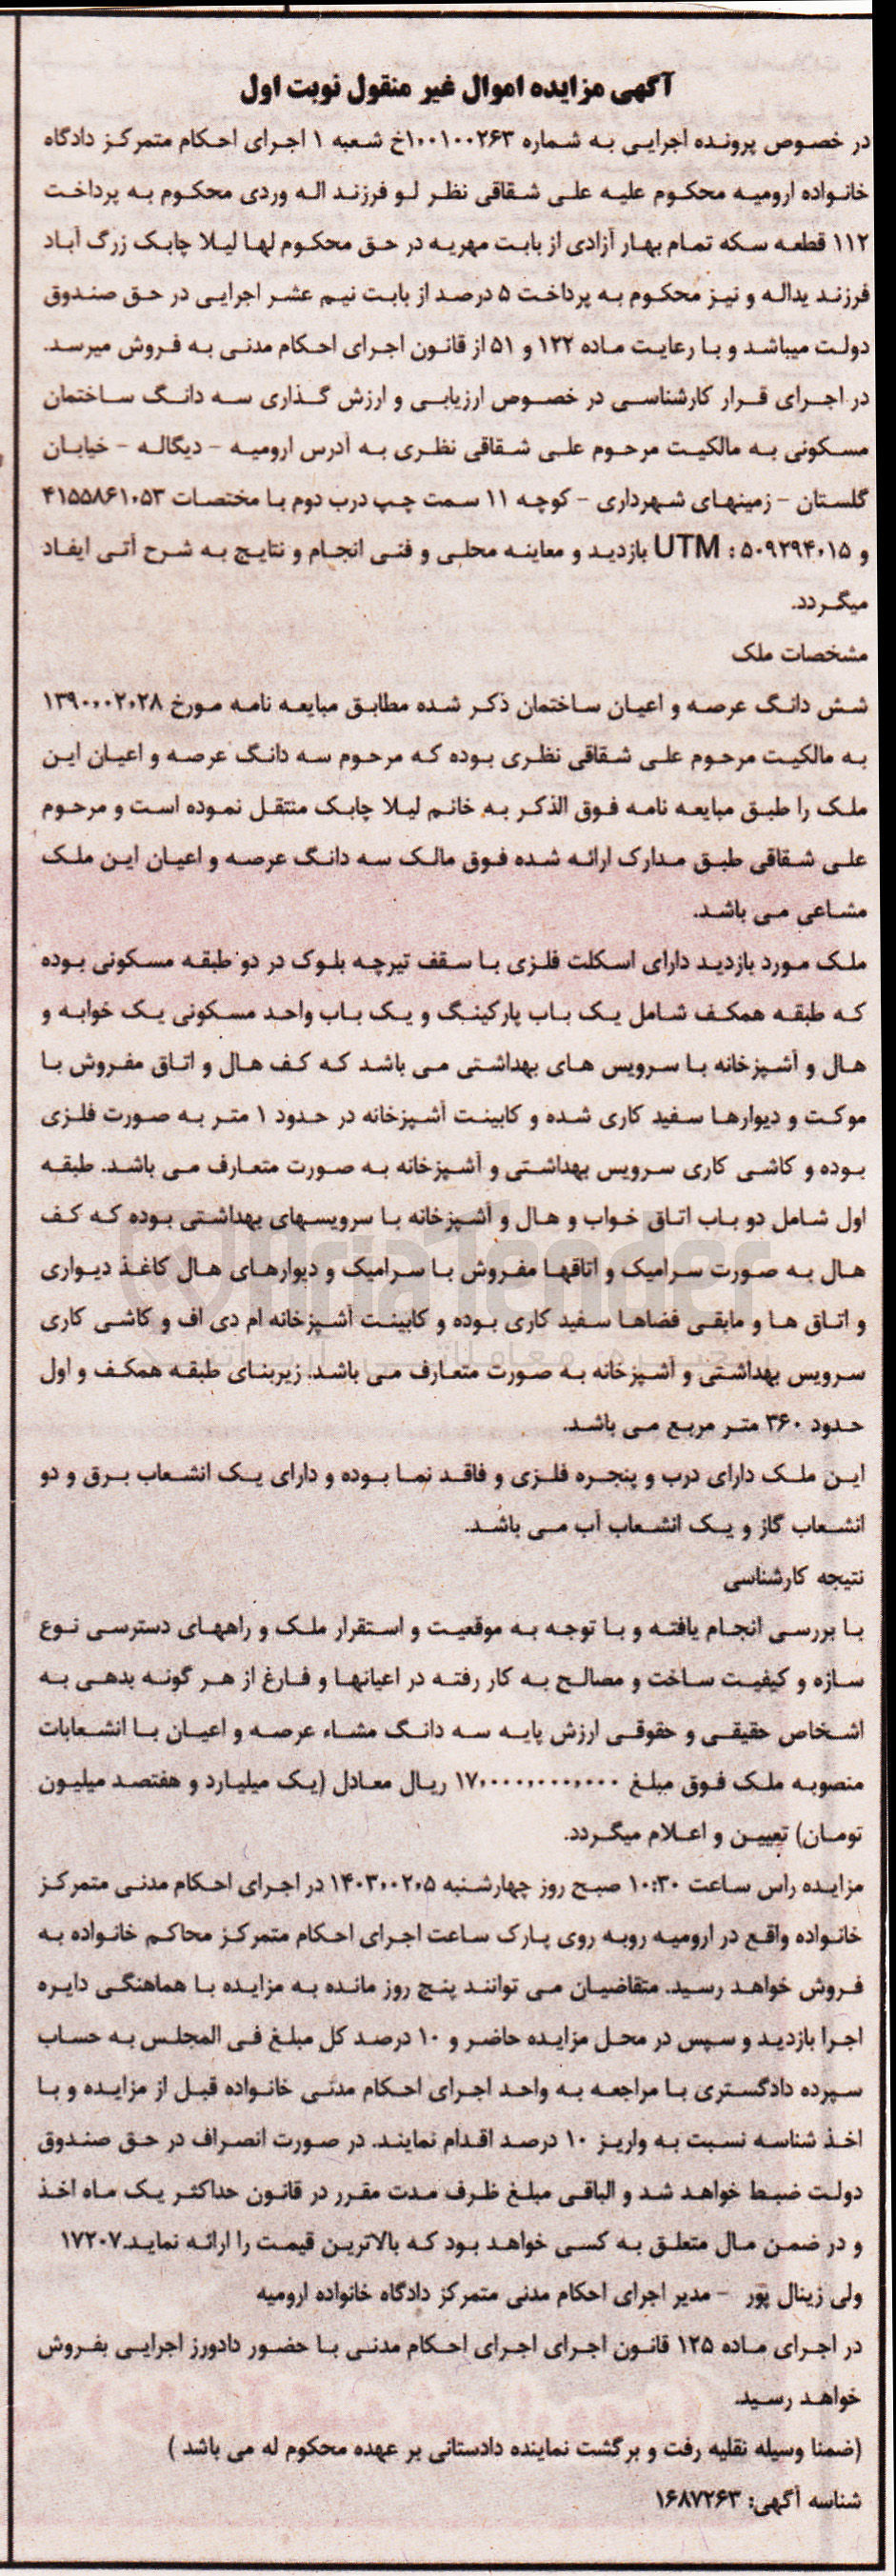 آگهی مزایده اموال غیر منقول نوبت اول
در خصوص پرونده اجرایی به شماره ۱۰۰۱۰۰۲۶۳خ شعبه ۱ اجرای احکام متمرکز دادگاه
خانواده ارومیه محکوم علیه علی شقاقی نظر لو فرزند اله وردی محکوم به پرداخت
۱۱۲ قطعه سکه تمام بهار آزادی از بابت مهریه در حق محکوم لها لیلا چابک زرگ آباد
فرزند یداله و نیز محکوم به پرداخت ۵ درصد از بابت نیم عشر اجرایی در حق صندوق
دولت میباشد و با رعایت ماده ۱۲۲ و ۵۱ از قانون اجرای احکام مدنی به فروش میرسد.
در اجرای قرار کارشناسی در خصوص ارزیابی و ارزش گذاری سه دانگ ساختمان
مسکونی به مالکیت مرحوم علی شقاقی نظری به آدرس ارومیه - دیگاله - خیابان
گلستان - زمینهای شهرداری - کوچه ۱۱ سمت چپ درب دوم با مختصات ۴۱۵۵۸۶۱۰۵۳
و ۵۰۹۲۹۴۰۱۵ : UTM بازدید و معاینه محلی و فنی انجام و نتایج به شرح آتی ایفاد
میگردد.
مشخصات ملک
شش دانگ عرصه و اعیان ساختمان ذکر شده مطابق مبایعه نامه مورخ ۱۳۹۰۰۰۲۰۲۸
به مالکیت مرحوم علی شقاقی نظری بوده که مرحوم سه دانگ عرصه و اعیان این
ملک را طبق مبایعه نامه فوق الذکر به خانم لیلا چابک منتقل نموده است و مرحوم
علی شقاقی طبق مدارک ارائه شده فوق مالک سه دانگ عرصه و اعیان این ملک
مشاعی می باشد.
ملک مورد بازدید دارای اسکلت فلزی با سقف تیرچه بلوک در دو طبقه مسکونی بوده
که طبقه همکف شامل یک باب پارکینگ و یک باب واحد مسکونی یک خوابه و
هال و آشپزخانه با سرویس های بهداشتی می باشد که کف هال و اتاق مفروش با
موکت و دیوارها سفید کاری شده و کابینت آشپزخانه در حدود ۱ متر به صورت فلزی
بوده و کاشی کاری سرویس بهداشتی و آشپزخانه به صورت متعارف می باشد. طبقه
اول شامل دو باب اتاق خواب و هال و آشپزخانه با سرویسهای بهداشتی بوده که کف
هال به صورت سرامیک و اتاقها مفروش با سرامیک و دیوارهای هال کاغذ دیواری
و اتاق ها و مابقی فضاها سفید کاری بوده و کابینت آشپزخانه ام دی اف و کاشی کاری
سرویس بهداشتی و آشپزخانه به صورت متعارف می باشد. زیربنای طبقه همکف و اول
حدود ۳۶۰ متر مربع می باشد.
این ملک دارای درب و پنجره فلزی و فاقد نما بوده و دارای یک انشعاب برق و دو
انشعاب گاز و یک انشعاب آب می باشد.
نتیجه کارشناسی
با بررسی انجام یافته و با توجه به موقعیت و استقرار ملک و راههای دسترسی نوع
سازه و کیفیت ساخت و مصالح به کار رفته در اعیانها و فارغ از هر گونه بدهی به
اشخاص حقیقی و حقوقی ارزش پایه سه دانگ مشاء عرصه و اعیان با انشعابات
منصوبه ملک فوق مبلغ ۱۷,۰۰۰,۰۰۰,۰۰۰ ریال معادل (یک میلیارد و هفتصد میلیون
تومان) تعیین و اعلام میگردد.
مزایده راس ساعت ۱۰:۳۰ صبح روز چهارشنبه ۱۴۰۳۰۰۲۰۵ در اجرای احکام مدنی متمرکز
خانواده واقع در ارومیه روبه روی پارک ساعت اجرای احکام متمرکز محاکم خانواده به
فروش خواهد رسید. متقاضیان می توانند پنج روز مانده به مزایده با هماهنگی دایره
اجرا بازدید و سپس در محل مزایده حاضر و ۱۰ درصد کل مبلغ فی المجلس به حساب
سپرده دادگستری با مراجعه به واحد اجرای احکام مدنی خانواده قبل از مزایده و با
اخذ شناسه نسبت به واریز ۱۰ درصد اقدام نمایند. در صورت انصراف در حق صندوق
دولت ضبط خواهد شد و الباقی مبلغ ظرف مدت مقرر در قانون حداکثر یک ماه اخذ
و در ضمن مال متعلق به کسی خواهد بود که بالاترین قیمت را ارائه نماید.۱۷۲۰۷
ولی زینال پور - مدیر اجرای احکام مدنی متمرکز دادگاه خانواده ارومیه
در اجرای ماده ۱۲۵ قانون اجرای اجرای احکام مدنی با حضور دادورز اجرایی بفروش
خواهد رسید.
(ضمنا وسیله نقلیه رفت و برگشت نماینده دادستانی بر عهده محکوم له می باشد )
شناسه آگهی: ۱۶۸۷۲۶۳